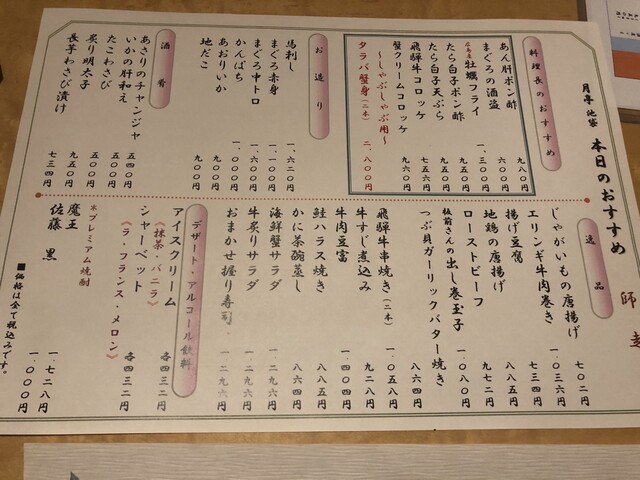 月亭 池袋 本日のおすすめ
師走
料理長のおすすめ
あん肝ポン酢 九八〇円
まぐろの酒盗 六〇〇円
広島産 牡蠣フライ 一、三〇〇円
たら白子ポン酢 九五〇円
たら白子天ぷら 九五〇円
飛騨牛コロッケ 七五六円
蟹クリームコロッケ 九六〇円
～しゃぶしゃぶ用～
タラバ蟹身(二本) 二、八〇〇円
お造り
馬刺し 一、六二〇円
まぐろ赤身 一、一〇〇円
まぐろ中トロ 一、六〇〇円
かんぱち 一、〇〇〇円
あおりいか 九〇〇円
地だこ 九〇〇円
酒肴
あさりのチャンジャ 五四〇円
いかの肝和え 五〇〇円
たこわさび 五〇〇円
炙り明太子 五〇〇円
長芋わさび漬け 七三四円
逸品
じゃがいもの唐揚げ 七〇二円
エリンギ牛肉巻き 一、〇三六円
揚げ豆腐 七三四円
地鶏の唐揚げ 八八五円
ローストビーフ 九七二円
板前さんの出し巻玉子 一、〇八〇円
つぶ貝ガーリックバター焼き 八六四円
飛騨牛串焼き(二本) 一、〇五八円
牛すじ煮込み 九二八円
牛肉豆富 一、四〇四円
鮭ハラス焼き 八八五円
かに茶碗蒸し 八六四円
海鮮蟹サラダ 一、二九六円
牛炙りサラダ 一、二九六円
おまかせ握り寿司 一、二九六円
デザート・アルコール飲料
アイスクリーム 各四三二円
(抹茶・バニラ)
シャーベット 各四三二円
(ラ・フランス・メロン)
＊プレミアム焼酎
魔王 一、七二八円
佐藤 黒 一、〇〇〇円
■価格は全て税込みです。